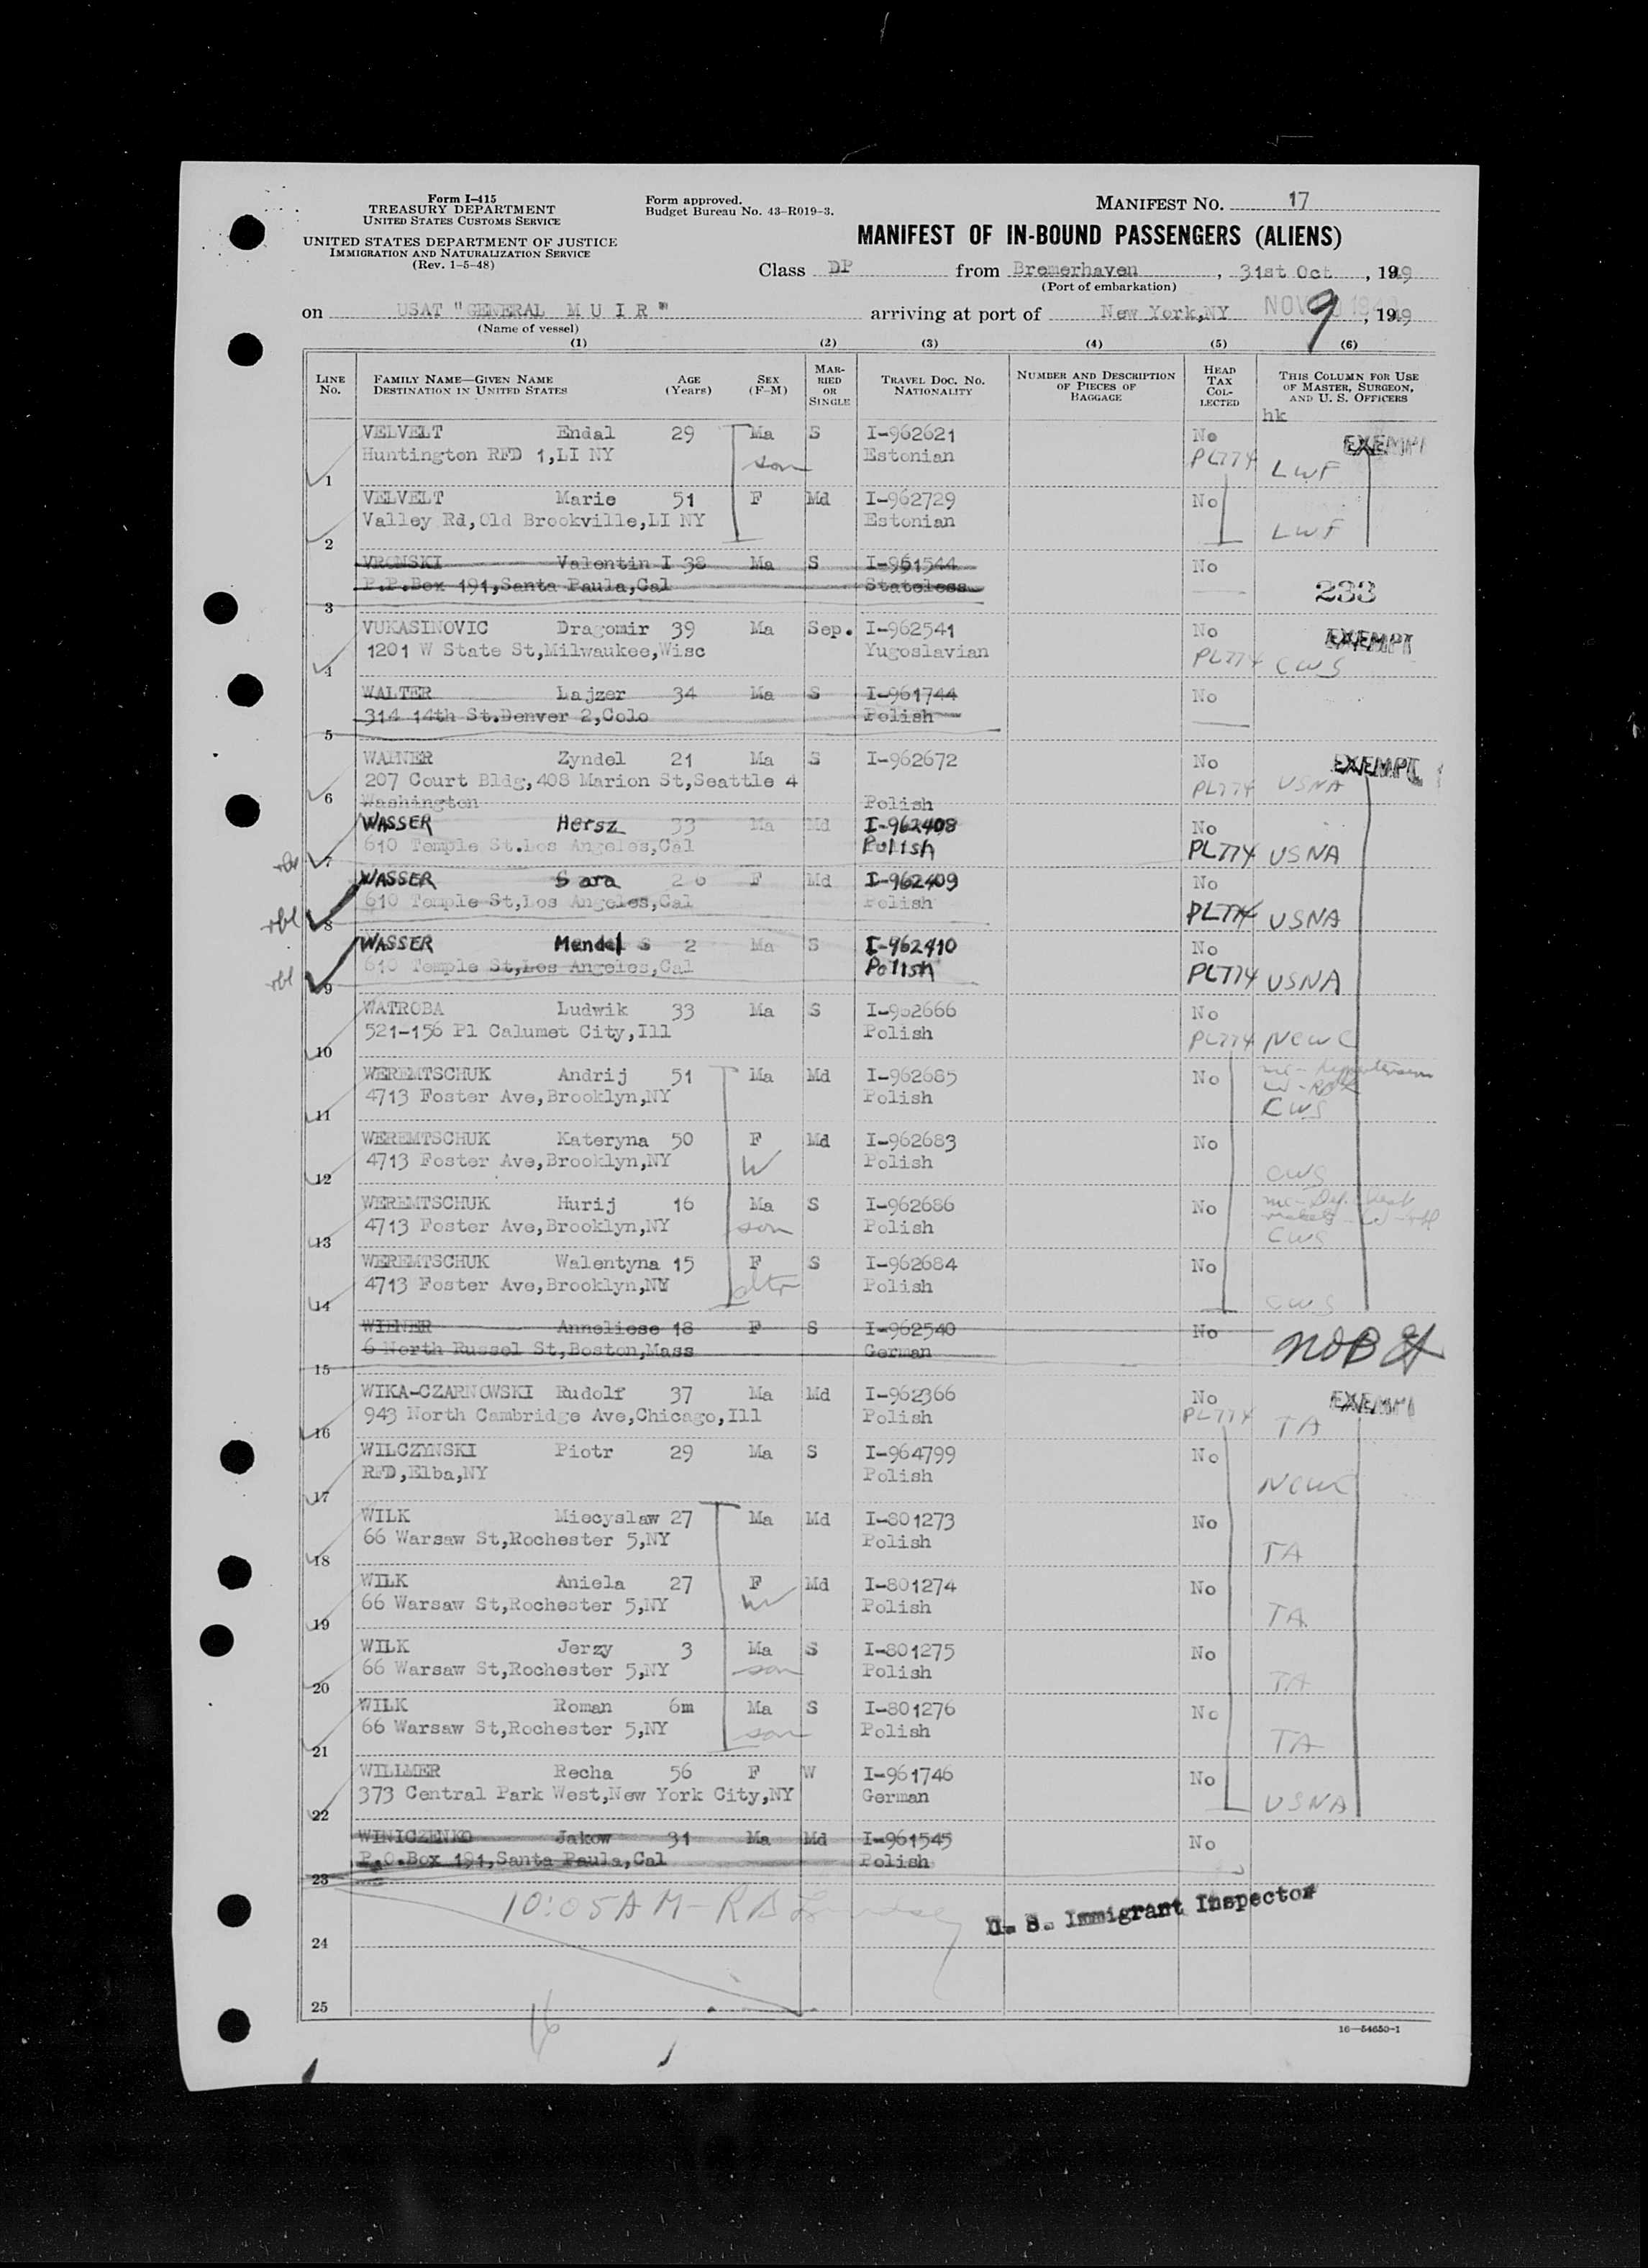 Form I-415
TREASURY DEPARTMENT
UNITED STATES CUSTOMS SERVICE
UNITED STATES DEPARTMENT OF JUSTICE
IMMIGRATION AND NATURALIZATION SERVICE
(Rev. 1-5-48)
Form approved.
Budget Bureau No. 43-R019-3.
MANIFEST NO. 17
MANIFEST OF IN-BOUND PASSENGERS (ALIENS)
Class DP from Bremerhaven, 31st Oct, 1949
(Port of embarkation)
on USAT "GENERAL M U I R" arriving at port of New York,NY NOV 9, 1949
(Name of vessel)
(1) (2) (3) (4) (5) (6)
LINE No. FAMILY NAME—GIVEN NAME DESTINATION IN UNITED STATES AGE (Years) SEX (F-M) MARRIED OR SINGLE TRAVEL DOC. NO. NATIONALITY NUMBER AND DESCRIPTION OF PIECES OF BAGGAGE HEAD TAX COLLECTED THIS COLUMN FOR USE OF MASTER, SURGEON, AND U. S. OFFICERS
hk
VELVELT Endal 29 Ma S I-962621 No EXEMPT
Huntington RFD 1,LI NY son Estonian PL774 LWF
1
VELVELT Marie 51 F Md I-962729 No
Valley Rd,Old Brookville,LI NY Estonian LWF
2
VRONSKI Valentin I 38 Ma S I-961544 No
P.P.Box 191,Santa Paula,Cal Stateless 233
3
VUKASINOVIC Dragomir 39 Ma Sep. I-962541 No EXEMPT
1201 W State St,Milwaukee,Wisc Yugoslavian PL774 CWS
4
WALTER Lajzer 34 Ma S I-961744 No
314 14th St.Denver 2,Colo Polish
5
Zyndel 21 Ma S I-962672 No EXEMPT
207 Court Bldg,408 Marion St,Seattle 4 PL774 USNA
6 Washington Polish
WASSER Hersz 33 Ma Md I-962408 No
610 Temple St.Los Angeles,Cal Polish PL774 USNA
7
WASSER Sara 20 F Md I-962409 No
610 Temple St,Los Angeles,Cal Polish PL774 USNA
rbl 8
WASSER Mendel S 2 Ma S I-962410 No
610 Temple St,Los Angeles,Cal Polish PL774 USNA
rbl 9
WATROBA Ludwik 33 Ma S I-962666 No
521-156 Pl Calumet City,Ill Polish PL774 NCWC
10
WEREMTSCHUK Andrij 51 Ma Md I-962685 No
4713 Foster Ave,Brooklyn,NY Polish CWS
11
WEREMTSCHUK Kateryna 50 F Md I-962683 No
4713 Foster Ave,Brooklyn,NY W Polish CWS
12
WEREMTSCHUK Hurij 16 Ma S I-962686 No
4713 Foster Ave,Brooklyn,NY son Polish CWS
13
WEREMTSCHUK Walentyna 15 F S I-962684 No
4713 Foster Ave,Brooklyn,NY dtr Polish CWS
14
WIENER Anneliese 18 F S I-962540 No
6 North Russel St,Boston,Mass German NOB
15
WIKA-CZARNOWSKI Rudolf 37 Ma Md I-962366 No EXEMPT
943 North Cambridge Ave,Chicago,Ill Polish PL774 TA
16
WILCZYNSKI Piotr 29 Ma S I-964799 No
RFD,Elba,NY Polish NCWC
17
WILK Miecyslaw 27 Ma Md I-801273 No
66 Warsaw St,Rochester 5,NY Polish TA
18
WILK Aniela 27 F Md I-801274 No
66 Warsaw St,Rochester 5,NY W Polish TA
19
WILK Jerzy 3 Ma S I-801275 No
66 Warsaw St,Rochester 5,NY son Polish TA
20
WILK Roman 6m Ma S I-801276 No
66 Warsaw St,Rochester 5,NY son Polish TA
21
WILLMER Recha 56 F W I-961746 No
373 Central Park West,New York City,NY German USNA
22
WINICZENKO Jakow 31 Ma Md I-961545 No
P.O.Box 191,Santa Paula,Cal Polish
23
10:05 AM - R B U. S. Immigrant Inspector
24
25
16
16—54650-1